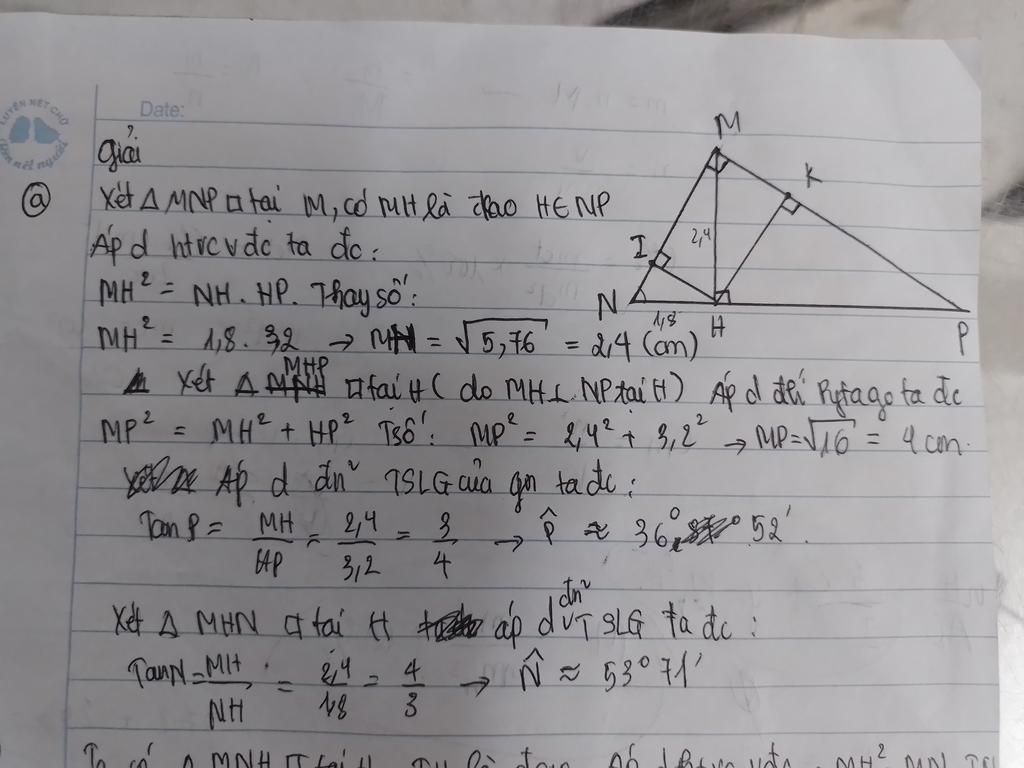 LUYỆN NÉT CHỮ
Date:
giải
ⓐ Xét △ MNP □ tại M, có MH là đcao H∈NP
Áp d htvcvđc ta đc:
MH² = NH . HP. Thay số:
MH² = 1,8 . 3,2 → MH = √5,76 = 2,4 (cm)
Xét △ MHP □ tại H (do MH⊥NP tại H) Áp d đlí Pytago ta đc
MP² = MH² + HP² Tsố: MP² = 2,4² + 3,2² → MP = √16 = 4 cm.
Áp d đn² TSLG của gn ta đc:
Tan P = MH/HP = 2,4/3,2 = 3/4 → P̂ ≈ 36° 52'.
Xét △ MHN □ tại H áp d đn² TSLG ta đc:
TanN = MH/NH = 2,4/1,8 = 4/3 → N̂ ≈ 53°71'
△ MNH □ tại H
M
K
I
2,4
N
1,8
H
P